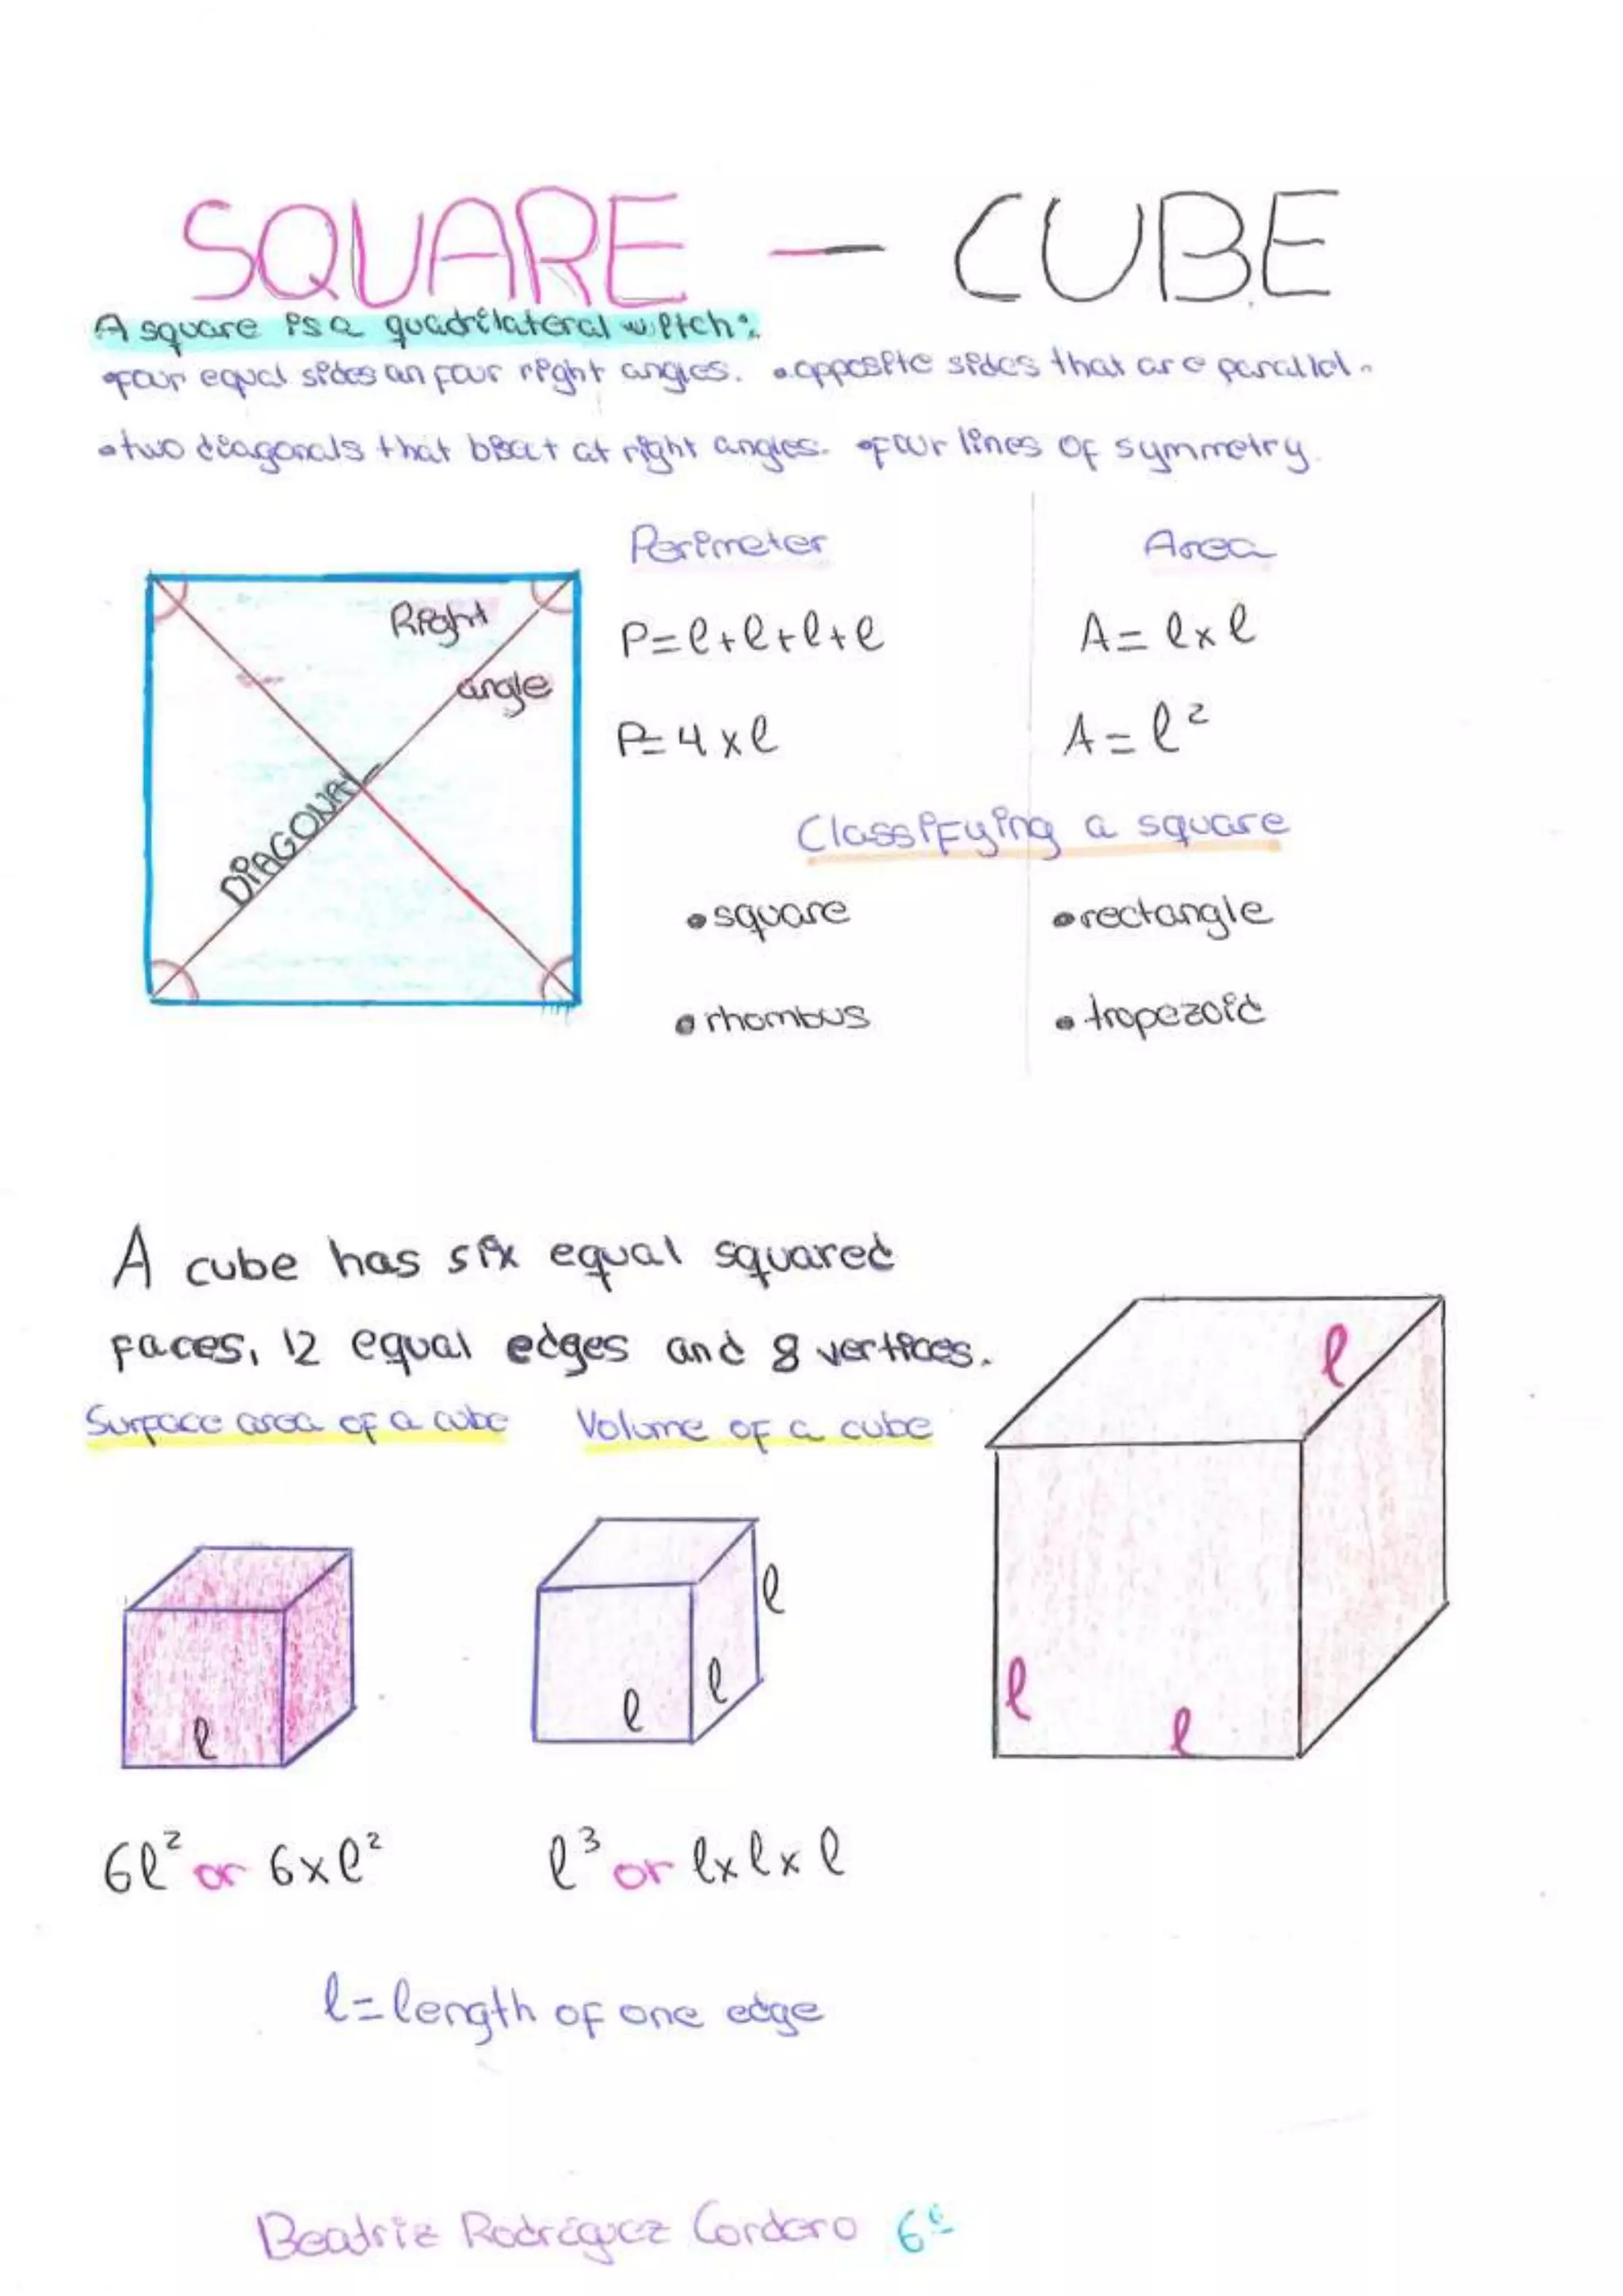 SQUARE — CUBE
A square is a quadrilateral witch:
•four equal sides an four right angles. •opposite sides that are parallel.
•two diagonals that bisect at right angles. •four lines of symmetry.
Perimeter Area
Right
angle
DIAGONAL
P=l+l+l+l A=l×l
P=4×l A=l²
Classifying a square
•square •rectangle
•rhombus •tropezoid
A cube has six equal squared
faces, 12 equal edges and 8 vertices.
Surface area of a cube Volume of a cube
l
l
l
l
l
l
l
6l² or 6×l² l³ or l×l×l
l=length of one edge
Beatriz Rodríguez Cordero 6º